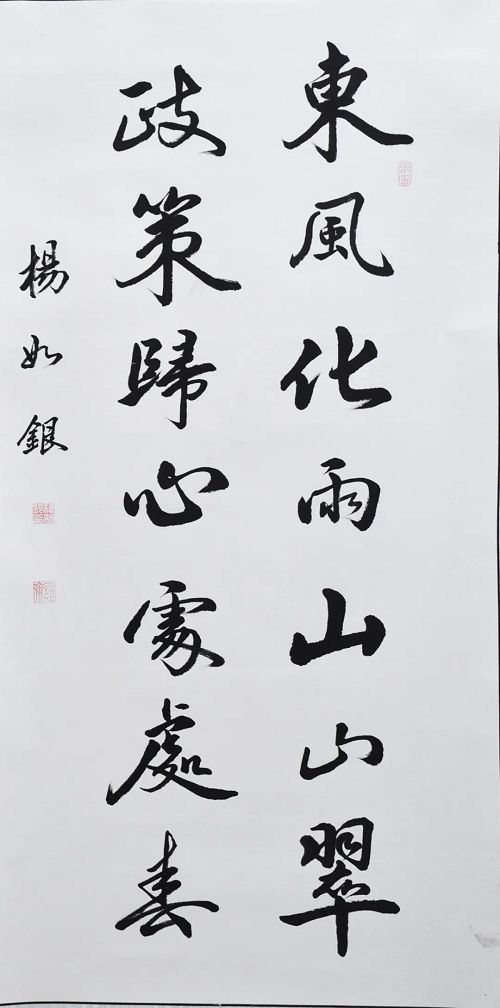 東風化雨山山翠
政策歸心處處春
楊如銀